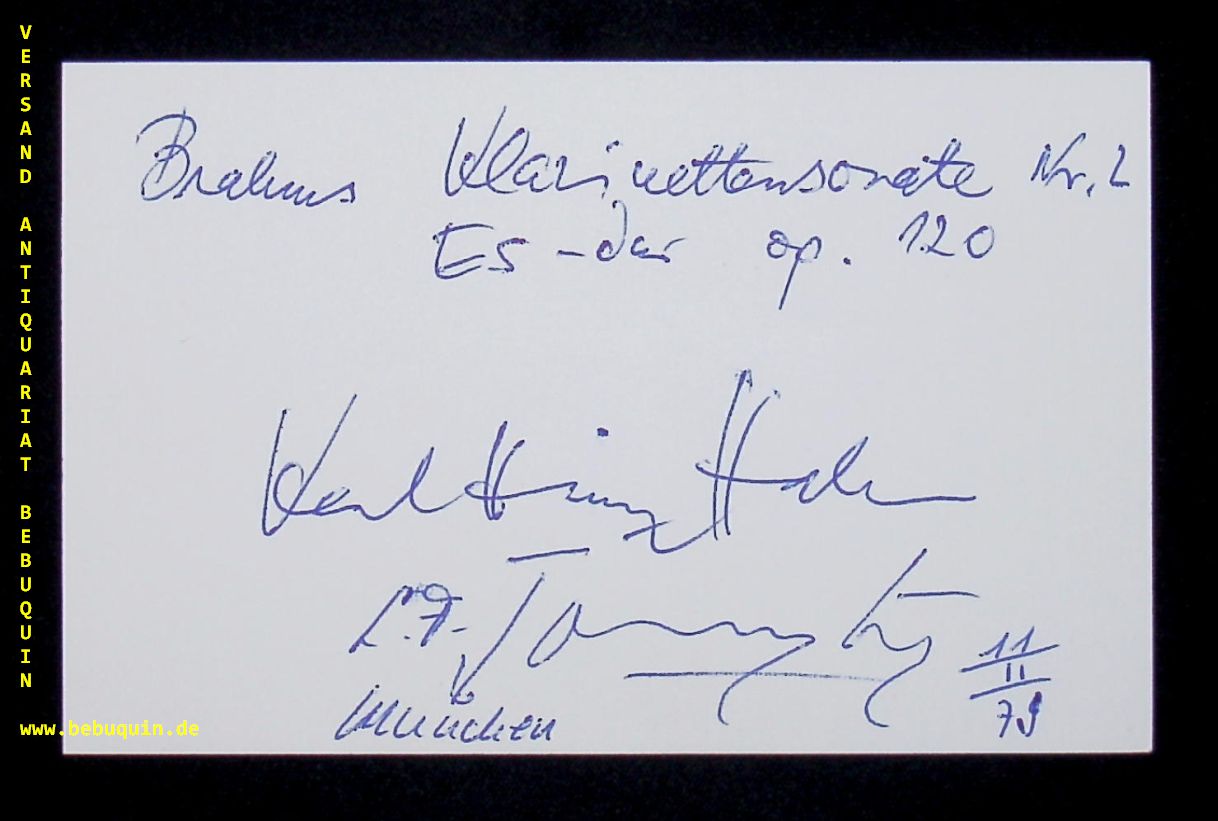 VERSAND ANTIQUARIAT BEBUQUIN
Brahms Klarinettensonate Nr. 2
Es-dur op. 120
Karl Heinz Hahn
München
11
II
79
www.bebuquin.de